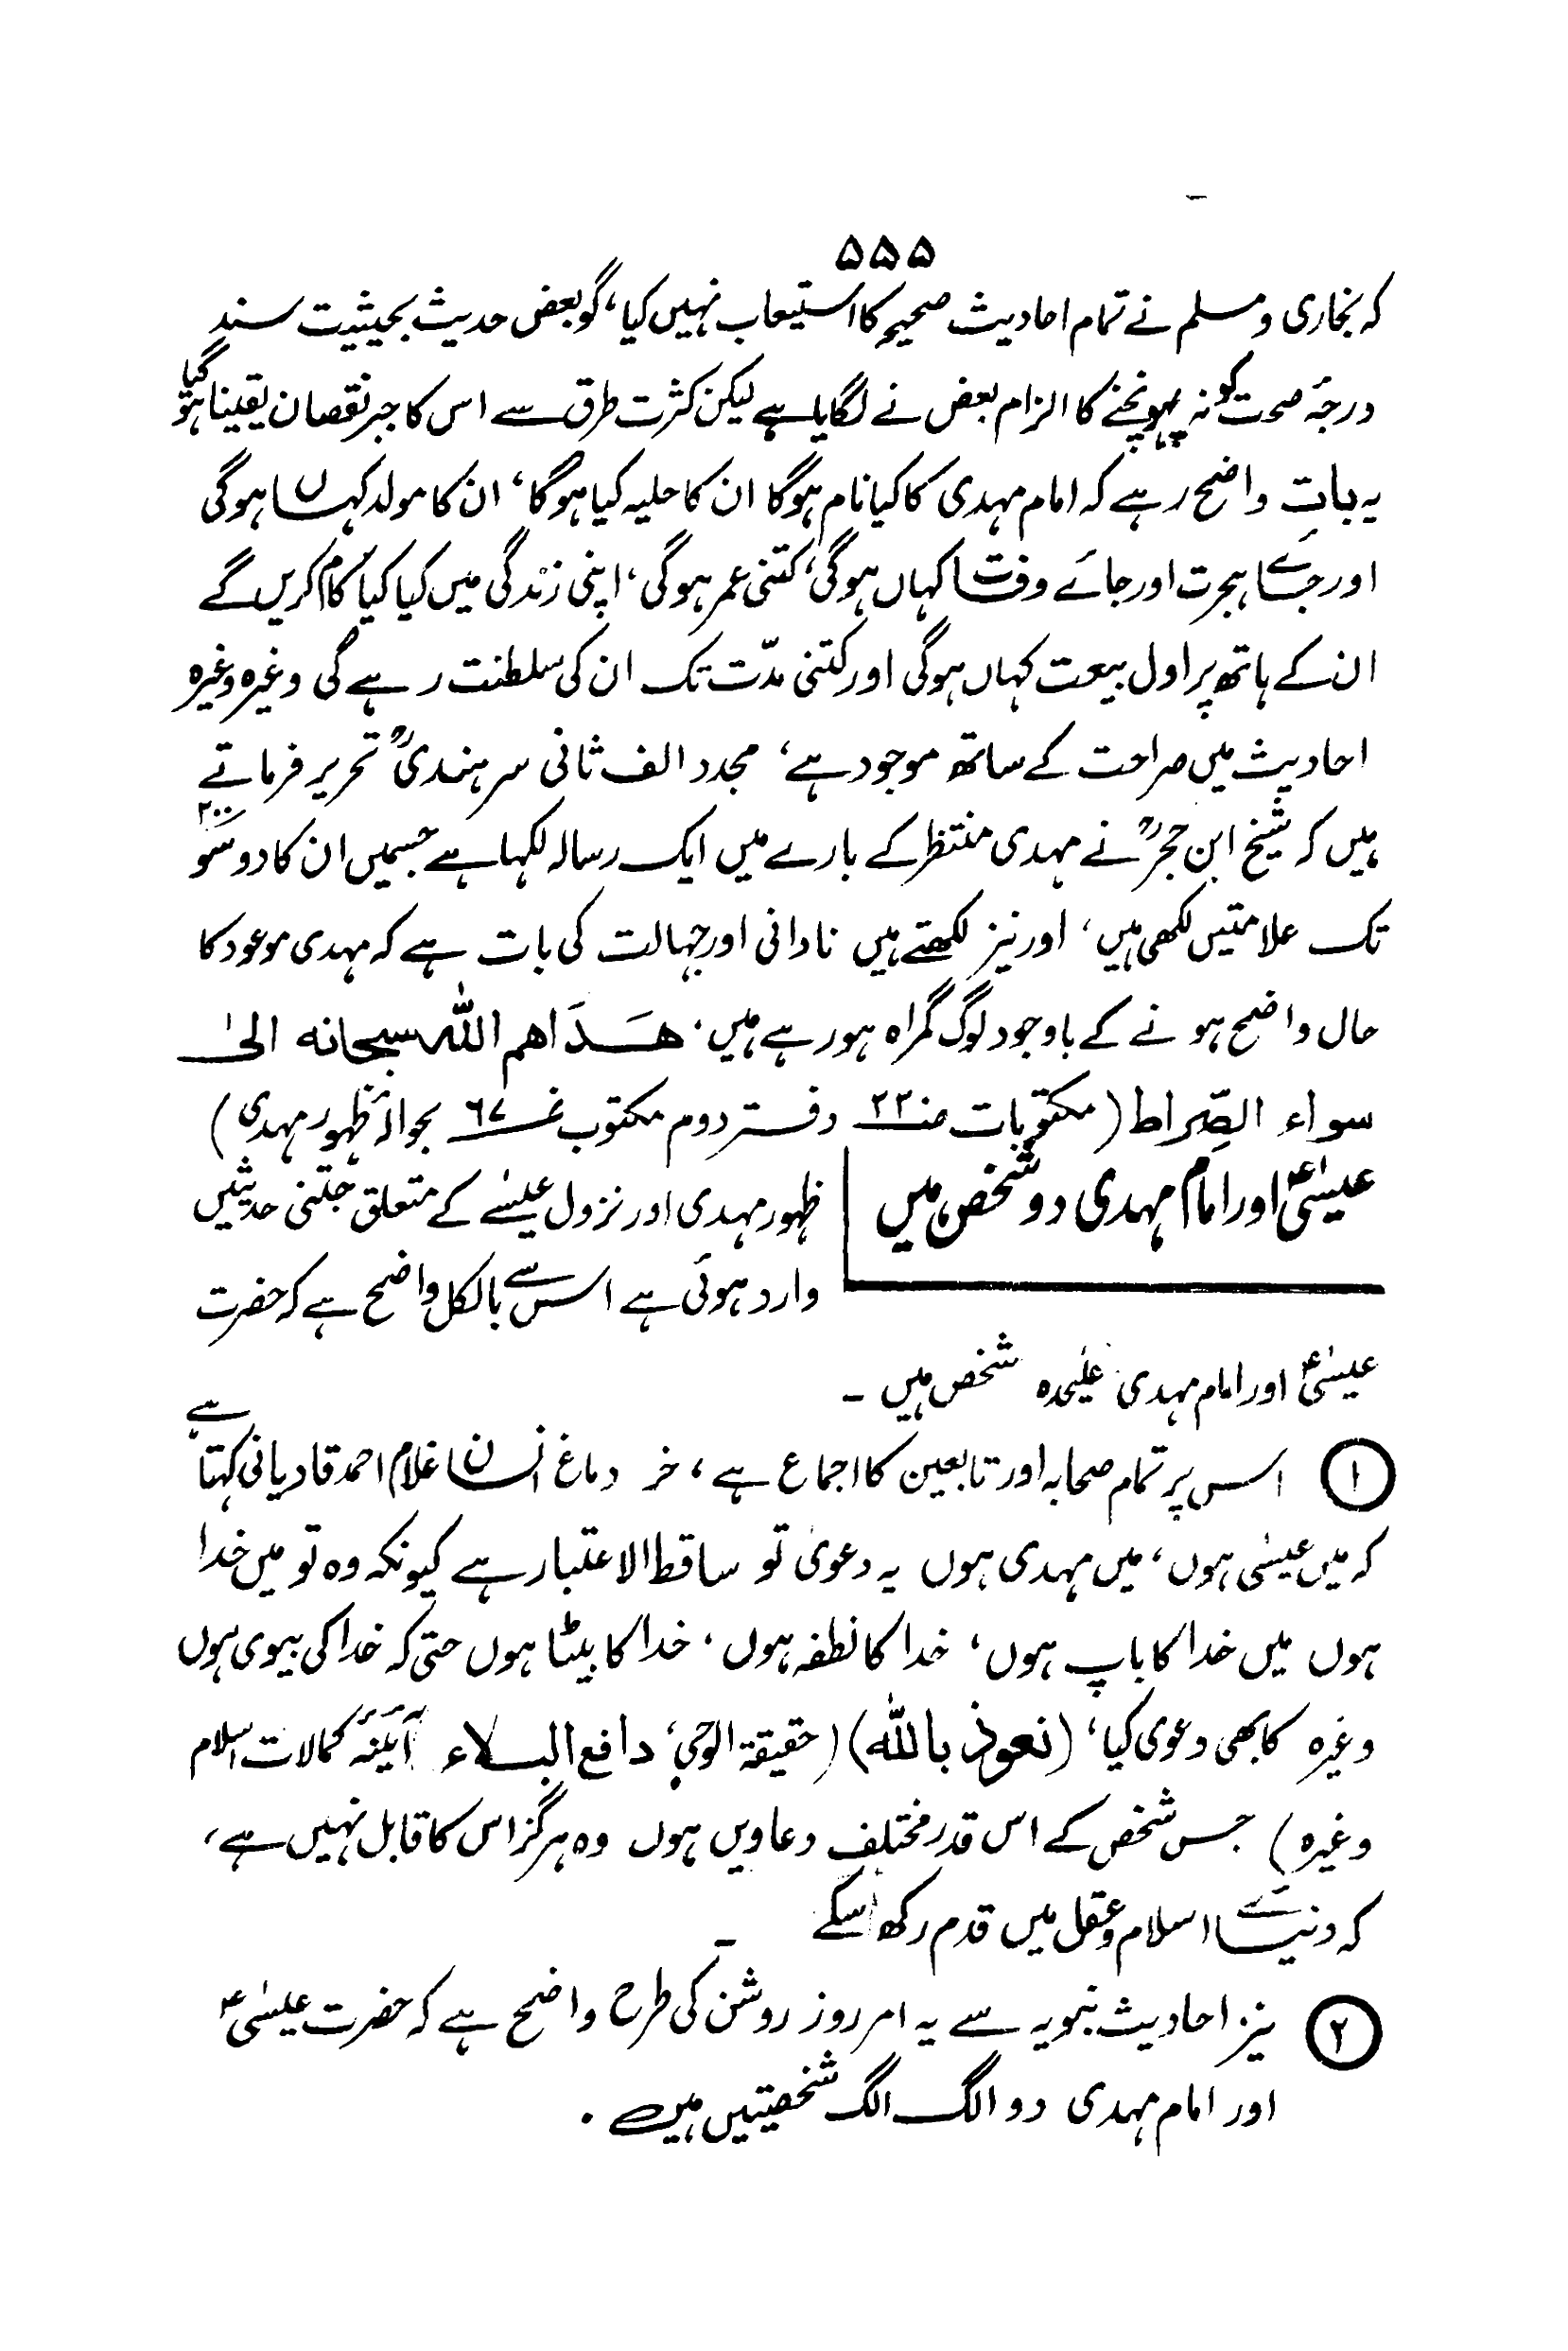 ۵۵۵
کہ بخاری ومسلم نے تمام احادیث صحیحہ کا استیعاب نہیں کیا، گو بعض حدیث بحیثیت سند
درجۂ صحت کو نہ پہونچنے کا الزام بعض نے لگایا ہے لیکن کثرت طرق سے اس کا جبر نقصان یقینا ہو گیا
یہ بات واضح رہے کہ امام مہدی کا کیا نام ہوگا ان کا حلیہ کیا ہوگا، ان کا مولد کہاں ہوگی
اور جائے ہجرت اور جائے وفات کہاں ہوگی، کتنی عمر ہوگی، اپنی زندگی میں کیا کیا کام کریں گے
ان کے ہاتھ پر اول بیعت کہاں ہوگی اور کتنی مدّت تک ان کی سلطنت رہے گی وغیرہ وغیرہ
احادیث میں صراحت کے ساتھ موجود ہے، مجدد الف ثانی سرہندیؒ تحریر فرماتے
ہیں کہ شیخ ابن حجرؒ نے مہدی منتظر کے بارے میں ایک رسالہ لکھا ہے جسمیں ان کا دو سو ۲۰۰
تک علامتیں لکھی ہیں، اور نیز لکھتے ہیں نادانی اور جہالت کی بات ہے کہ مہدی موعود کا
حال واضح ہونے کے باوجود لوگ گمراہ ہو رہے ہیں، هَدَاهم اللّٰه سبحانه الیٰ
سواء الصّراط (مکتوبات صـ۲۲ دفتر دوم مکتوب نمبر ۶۷ بحوالۂ ظہور مہدی)
عیسٰیؑ اور امام مہدی دو شخص ہیں
ظہور مہدی اور نزول عیسٰے کے متعلق جتنی حدیثیں
وارد ہوئی ہے اس سے بالکل واضح ہے کہ حضرت
عیسٰیؑ اور امام مہدی علیٰحدہ شخص ہیں ۔
① اس پر تمام صحابہ اور تابعین کا اجماع ہے، خر دماغ انسان غلام احمد قادیانی کہتا ہے
کہ میں عیسٰی ہوں، میں مہدی ہوں یہ دعویٰ تو ساقط الاعتبار ہے کیونکہ وہ تو میں خدا
ہوں میں خدا کا باپ ہوں، خدا کا نطفہ ہوں، خدا کا بیٹا ہوں حتی کہ خدا کی بیوی ہوں
وغیرہ کا بھی دعوی کیا، (نعوذ باللّٰه) (حقیقۃ الوحی، دافع البلاء آئینۂ کمالات اسلام
وغیرہ) جس شخص کے اس قدر مختلف دعاویں ہوں وہ ہرگز اس کا قابل نہیں ہے،
کہ دنیائے اسلام وعقل میں قدم رکھ سکے ۔
② نیز احادیث نبویہ سے یہ امر روز روشن کی طرح واضح ہے کہ حضرت عیسٰیؑ
اور امام مہدی دو الگ الگ شخصیتیں ہیں ۔